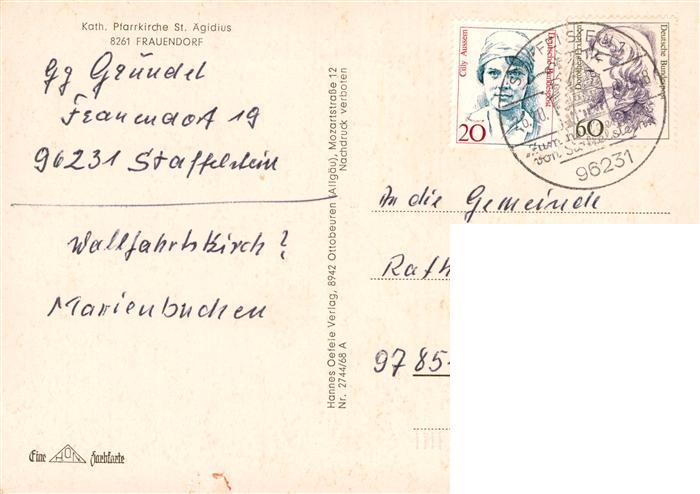 Kath. Pfarrkirche St. Ägidius
8261 FRAUENDORF
Gg Gründel
Frauendorf 19
96231 Staffelstein
Wallfahrtskirch?
Marienbuchen
Eine HON Farbkarte
Hannes Oefele Verlag, 8942 Ottobeuren (Allgäu), Mozartstraße 12
Nr. 2744/68 A
Nachdruck verboten
Cilly Aussem
Deutsche Bundespost
20
Deutsche Bundespost
60
96231
An die Gemeinde
Rath
97 85